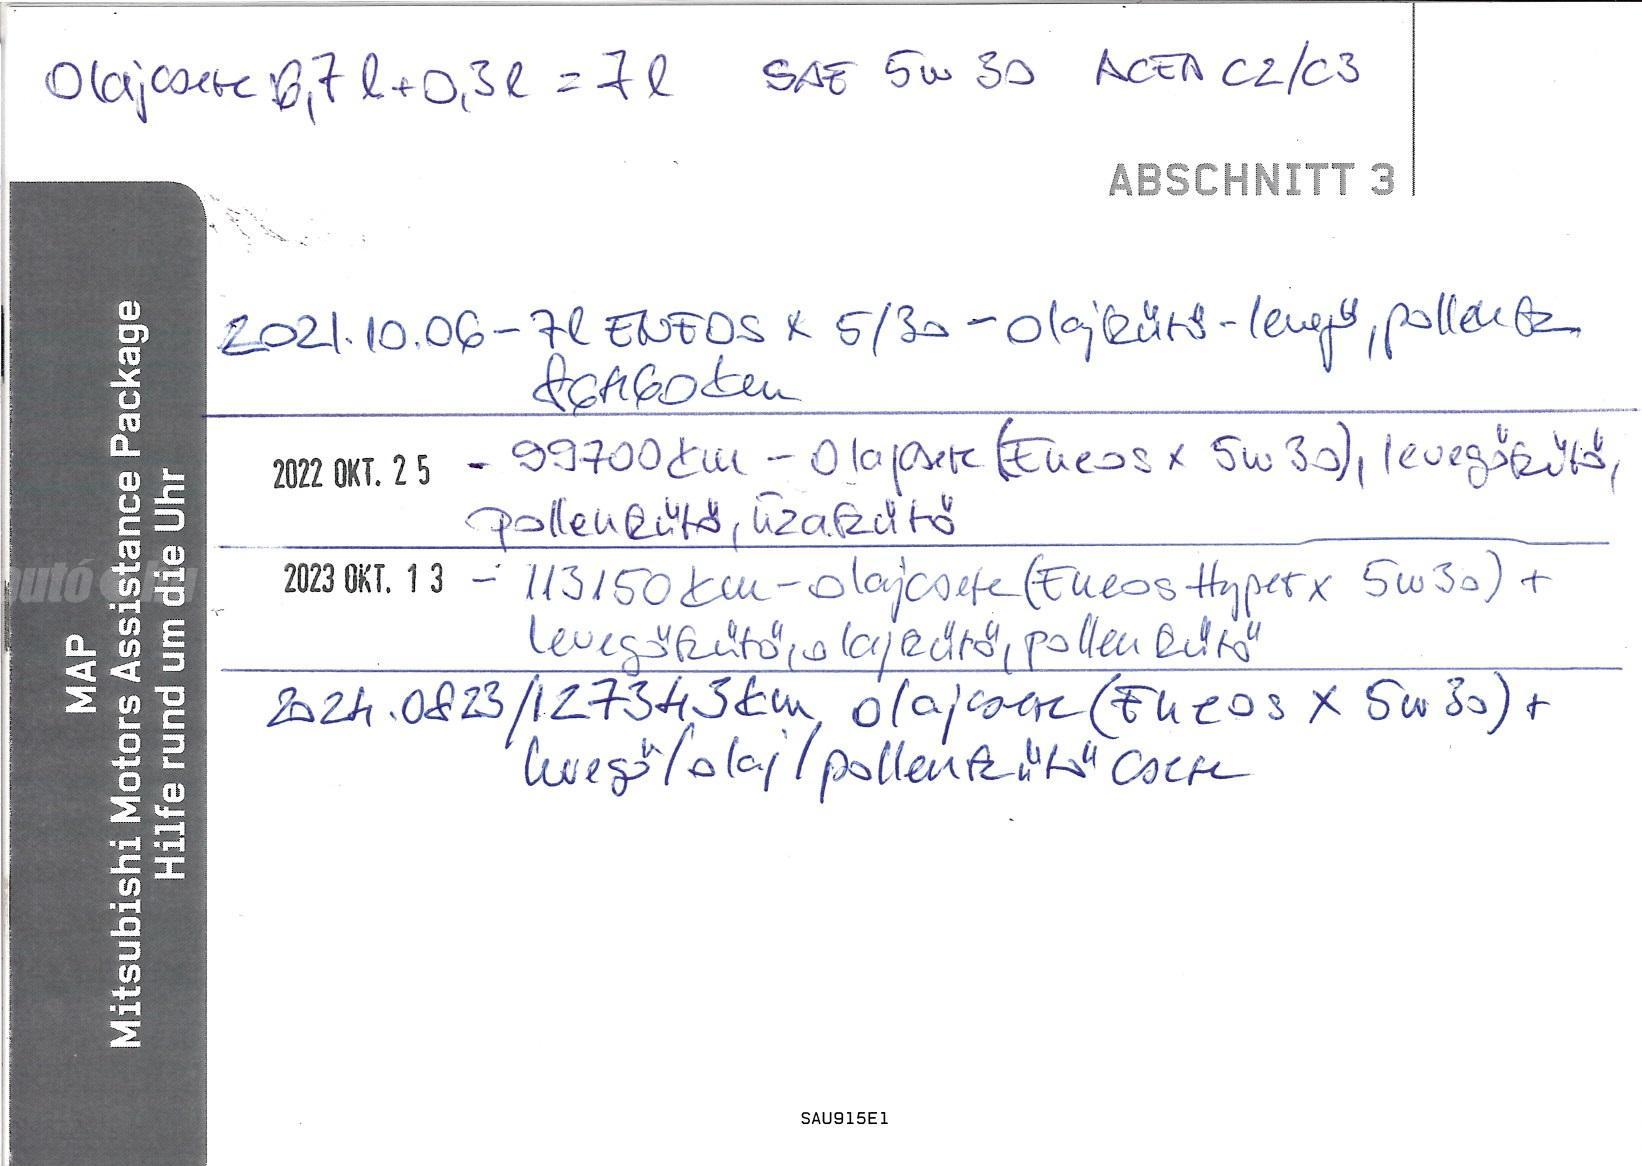 Olajcsere 6,7 l + 0,3 l = 7 l SAE 5w30 ACEA C2/C3
ABSCHNITT 3
2021.10.06 - 7l ENEOS X 5/30 - olajszűrő - levegő, pollensz.
86460 km
2022 OKT. 25 - 99700 km - Olajcsere (Eneos X 5w30), levegőszűrő,
pollenszűrő, üzaszűrő
2023 OKT. 13 - 113150 km - olajcsere (Eneos Hyper X 5w30) +
levegőszűrő, olajszűrő, pollenszűrő
2024.0823/127343 km, olajcsere (Eneos X 5w30) +
levegő/olaj/pollenszűrő csere
MAP
Mitsubishi Motors Assistance Package
Hilfe rund um die Uhr
SAU915E1